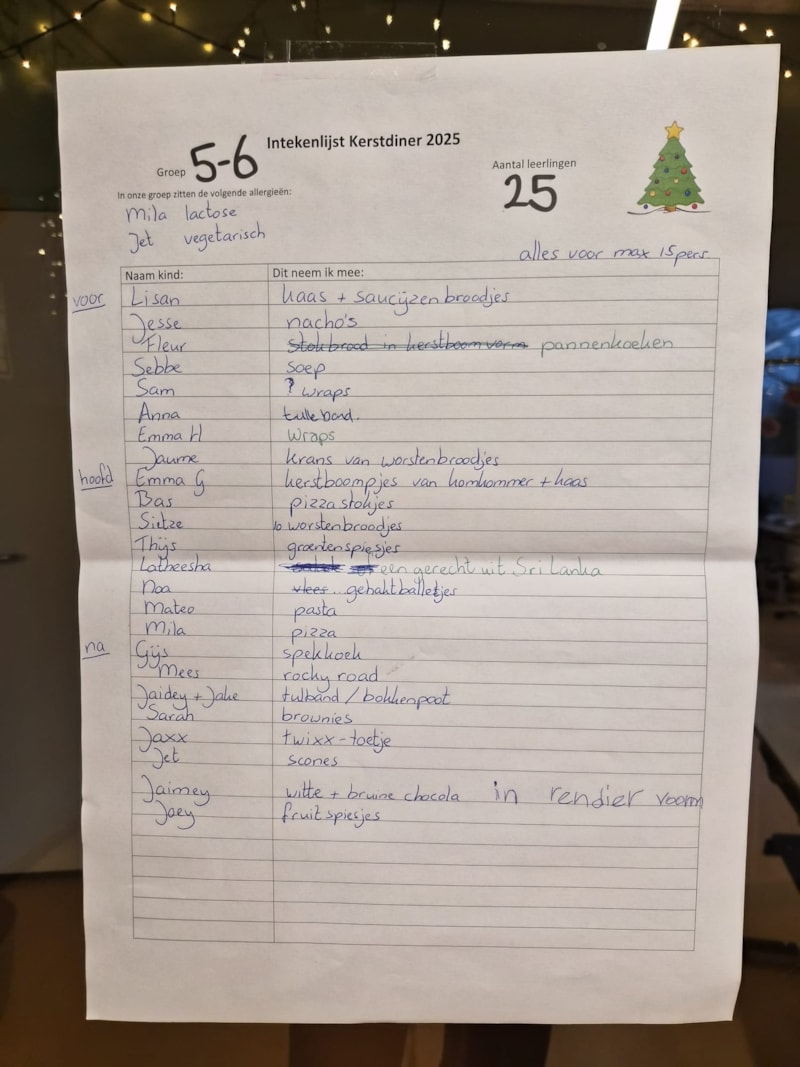 Intekenlijst Kerstdiner 2025
Groep 5-6
Aantal leerlingen
25
In onze groep zitten de volgende allergieën:
Mila lactose
Jet vegetarisch
alles voor max 15 pers
Naam kind: Dit neem ik mee:
voor Lisan kaas + saucijzenbroodjes
Jesse nacho's
Fleur Stokbrood in kerstboomvorm pannenkoeken
Sebbe soep
Sam ? wraps
Anna tulleband.
Emma H wraps
Jaume krans van worstenbroodjes
hoofd Emma G kerstboompjes van komkommer + kaas
Bas pizza stokjes
Sietze 10 worstenbroodjes
Thijs groentenspiesjes
Latheesha een gerecht uit Sri Lanka
Noa vlees.. gehaktballetjes
Mateo pasta
Mila pizza
na Gijs spekkoek
Mees rocky road
Jaidey + Jake tulband / bokkenpoot
Sarah brownies
Jaxx twixx-toetje
Jet scones
Jaimey witte + bruine chocola in rendier vorm
Joey fruit spiesjes